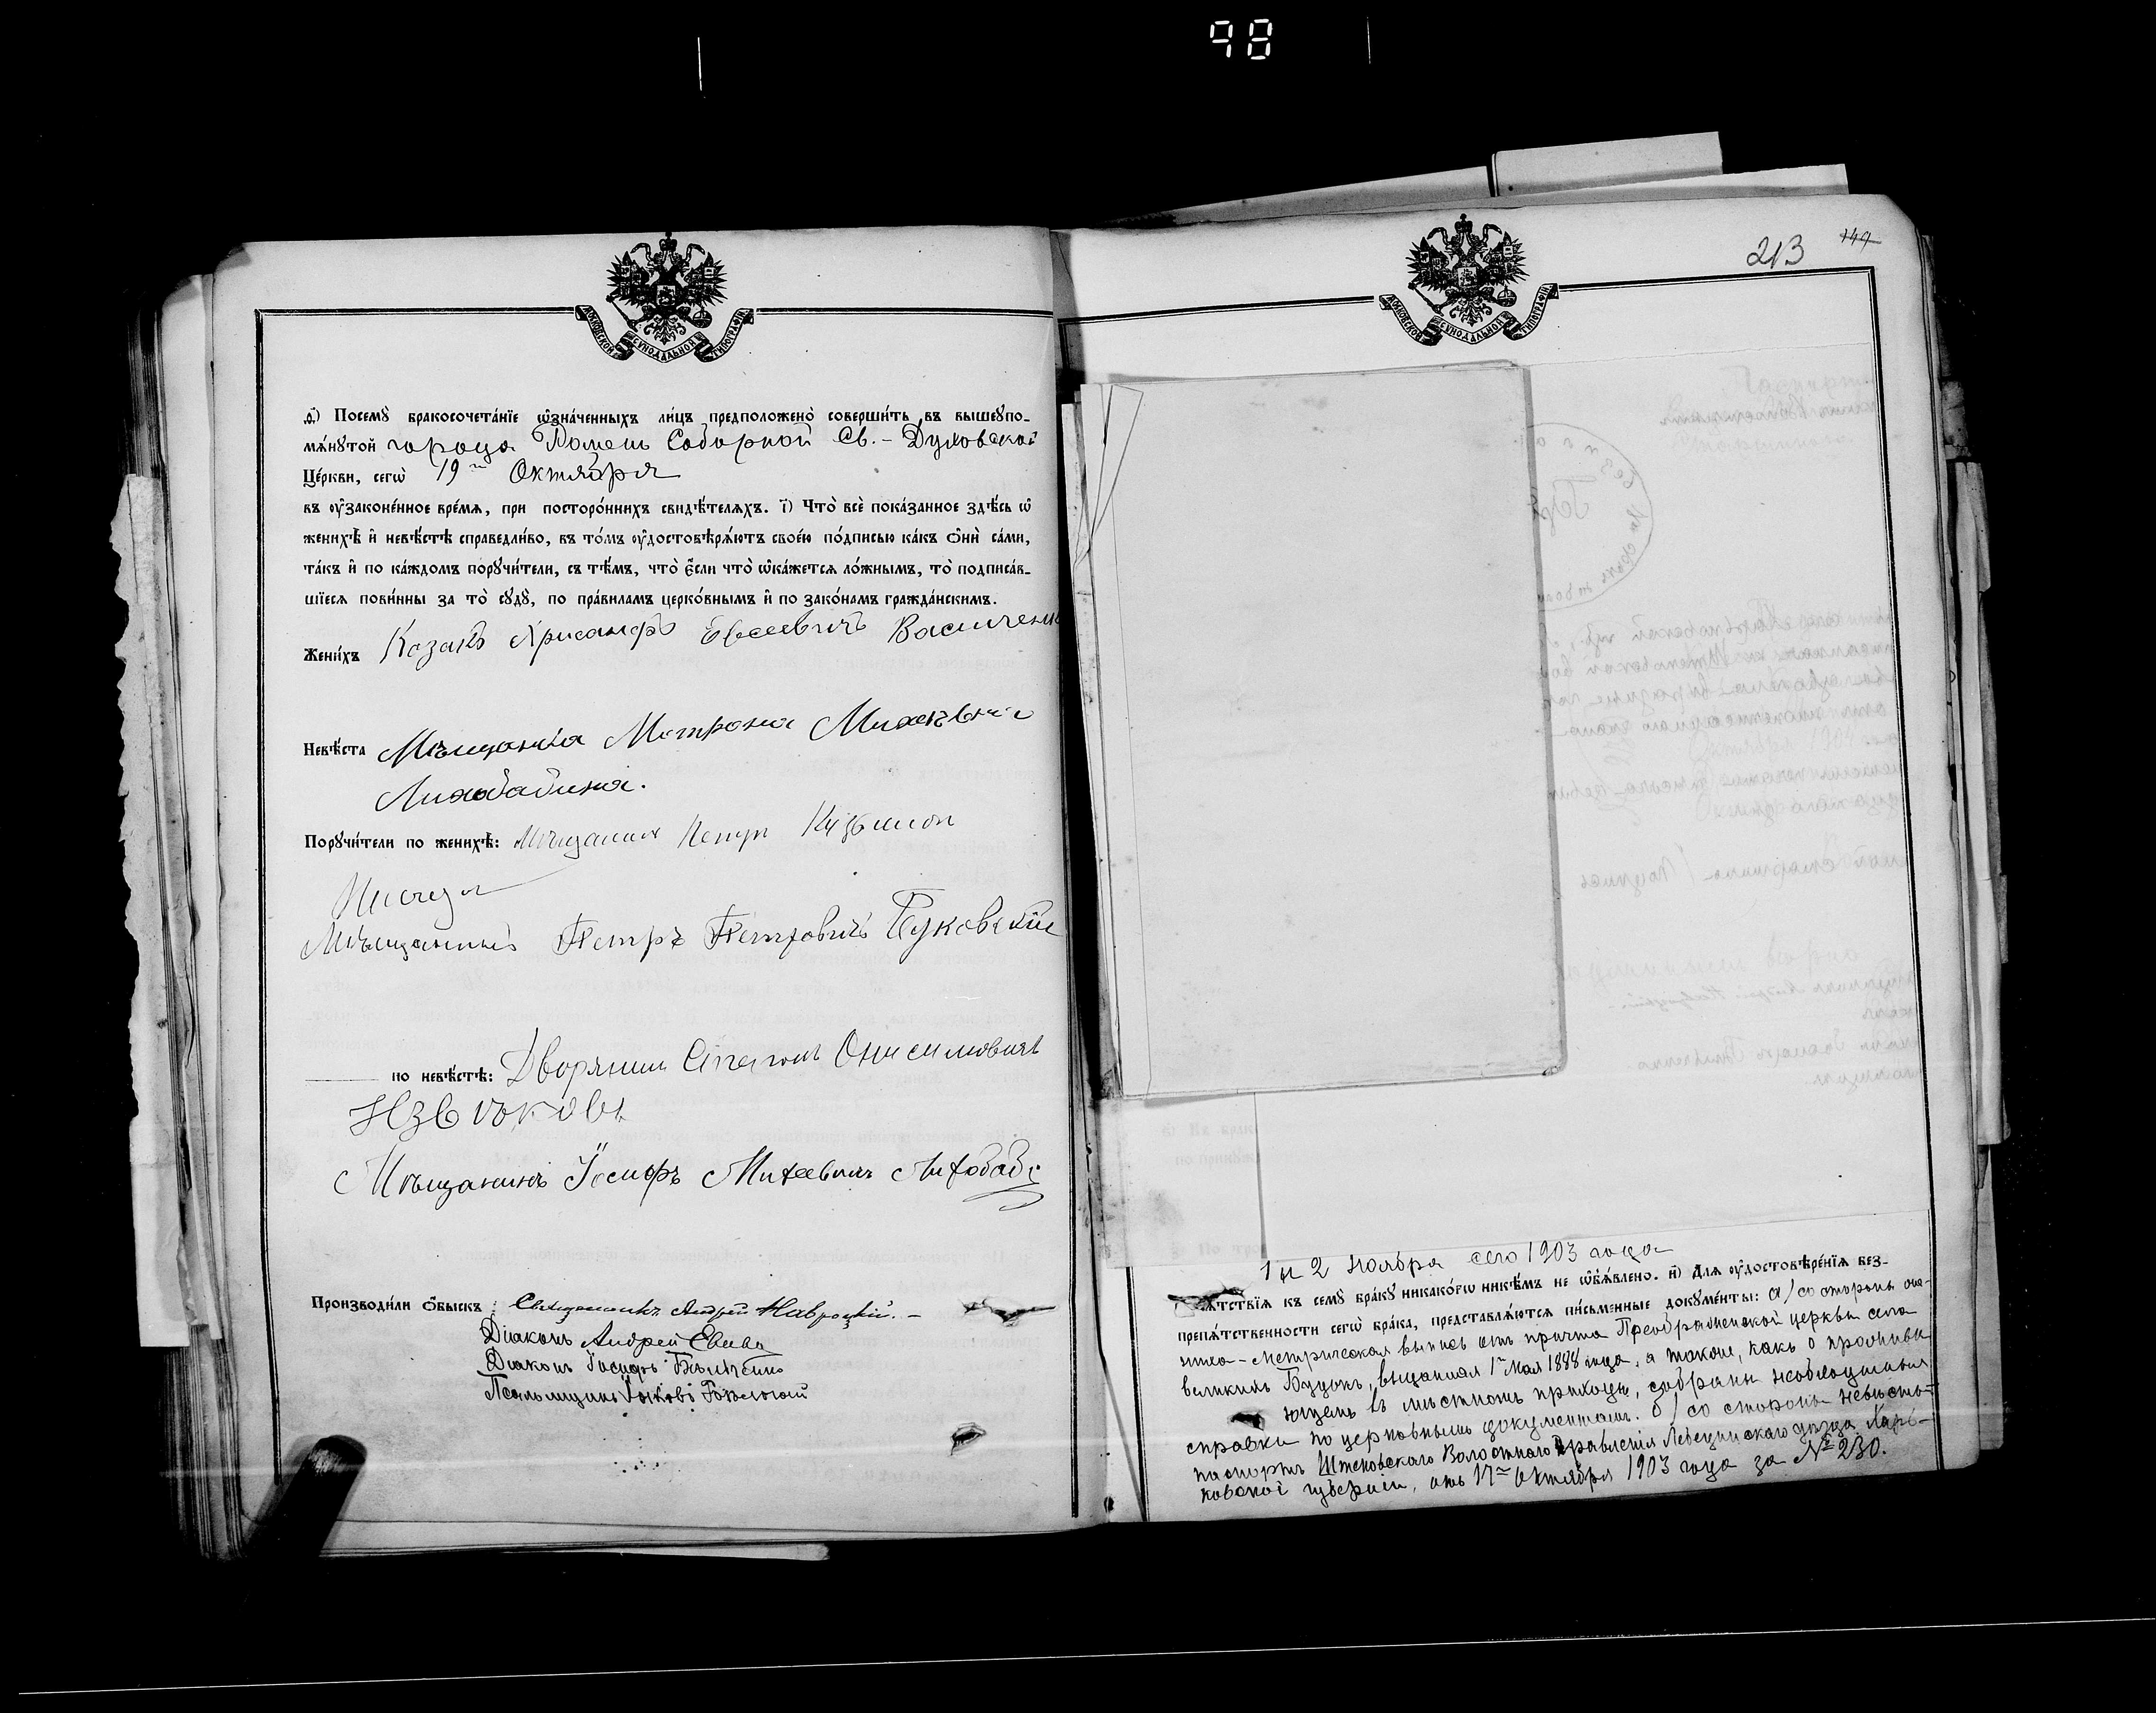 98
МОСКОВСКОЙ СУНОДАЛЬНОЙ ТИПОГРАФІИ
д҃) Посемꙋ̀ бракосочета́нїе ѡ҆зна́ченныхъ ли́цъ предположено̀ соверши́ть въ вышеꙋпо-
мѧ́нꙋтой города Ромен Соборной Св.-Духовской
Це́ркви, сегѡ̀ 19го Октября
въ ᲂу҆зако́нéнное врéмѧ, при посторо́ннихъ свидѣ́телѧхъ. і҃) Что̀ всѐ пока́занное здѣ́сь ѡ҆
женихѣ̀ и҆ невѣ́стѣ справедли́во, въ то́мъ ᲂу҆достовѣрѧ́ютъ своéю по́дписью ка́къ ѻ҆нѝ са́ми,
та́къ и҆ по ка́ждомъ порꙋчи́тели, съ тѣ́мъ, что̀ є҆́сли что̀ ѡ҆ка́жетсѧ ло́жнымъ, то̀ подписа́в-
шїесѧ пови́нны за то̀ сꙋдꙋ̀, по пра́виламъ церко́внымъ и҆ по зако́намъ гражда́нскимъ.
Жени́хъ Козакъ Хрисанфъ Евсеевичъ Василенк
Невѣ́ста Мѣщанка Матрона Михѣевна
Лихобабина.
Порꙋчи́тели по женихѣ̀: Мѣщанин Петр Кузьмич
Мѣщанинъ Петръ Петровичъ Буковскій
по невѣ́стѣ: Дворянин Степан Онисимовичъ
Мѣщанинъ Іосифъ Михеевичъ Лихобаби
Производи́ли ѻ҆́быскъ: Священникъ Андрей Навроцкій.-
Діаконъ Андрей
Діаконъ Іосифъ
Псаломщикъ Іаковъ
213 149
1 и 2 Ноября сего 1903 года
ѧ́тствїѧ къ семꙋ̀ бра́кꙋ никако́гѡ никѣ́мъ не ѡ҆б̾ѧ́влено. и҃) Для ᲂу҆достовѣрéнїѧ без-
препѧ́тственности сегѡ̀ бра́ка, представлѧ́ютсѧ пи́сьменные докумéнты: а) со стороны же-
ниха - Метрическая выпись отъ причта Преображенской церкви села
великихъ Будокъ, выданная 1го Мая 1888 года, а также, какъ о проживаю-
ющемъ въ мѣстномъ приходѣ, собраны необходимыя
справки по церковнымъ документамъ. б) со стороны невѣсты-
паспортъ Штеповскаго Волостного Правленія Лебединскаго уѣзда Харь-
ковской губерніи, отъ 17го Октября 1903 года за № 230.